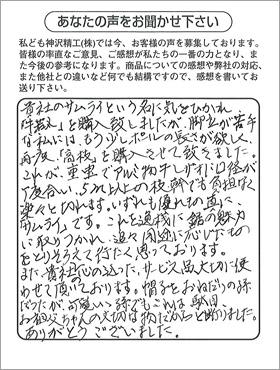 あなたの声をお聞かせ下さい
私ども神沢精工(株)では今、お客様の声を募集しております。
皆様の率直なご意見、ご感想が私たちの一番の力となり、ま
た今後の参考になります。商品についての感想や弊社の対応、
また他社との違いなど何でも結構ですので、感想を書いてお
送り下さい。
貴社のサムライという名に気をひかれ
を購入致しましたが、脚立が苦手
な私には、もう少しポールの長さが欲し
再度、「高枝」を購入させて頂きました。
これが、重宝でアルミ物干しザオに口径が
度合い、5m以上の枝でも負担なく
楽々と切れます。いずれも優れもの、真に
サムライです。これを機に鋸の魅力
に取りつかれ、追々用途に応じたもの
をとりそろえて行きたく思っております。
また、貴社心の込った、サービス品大切に使
わせて頂いております。帽子をおねだりの孫
だったが、可愛い孫でもこれは駄目、
お祖父ちゃんの大切な物だからと断りました。
ありがとうございました。